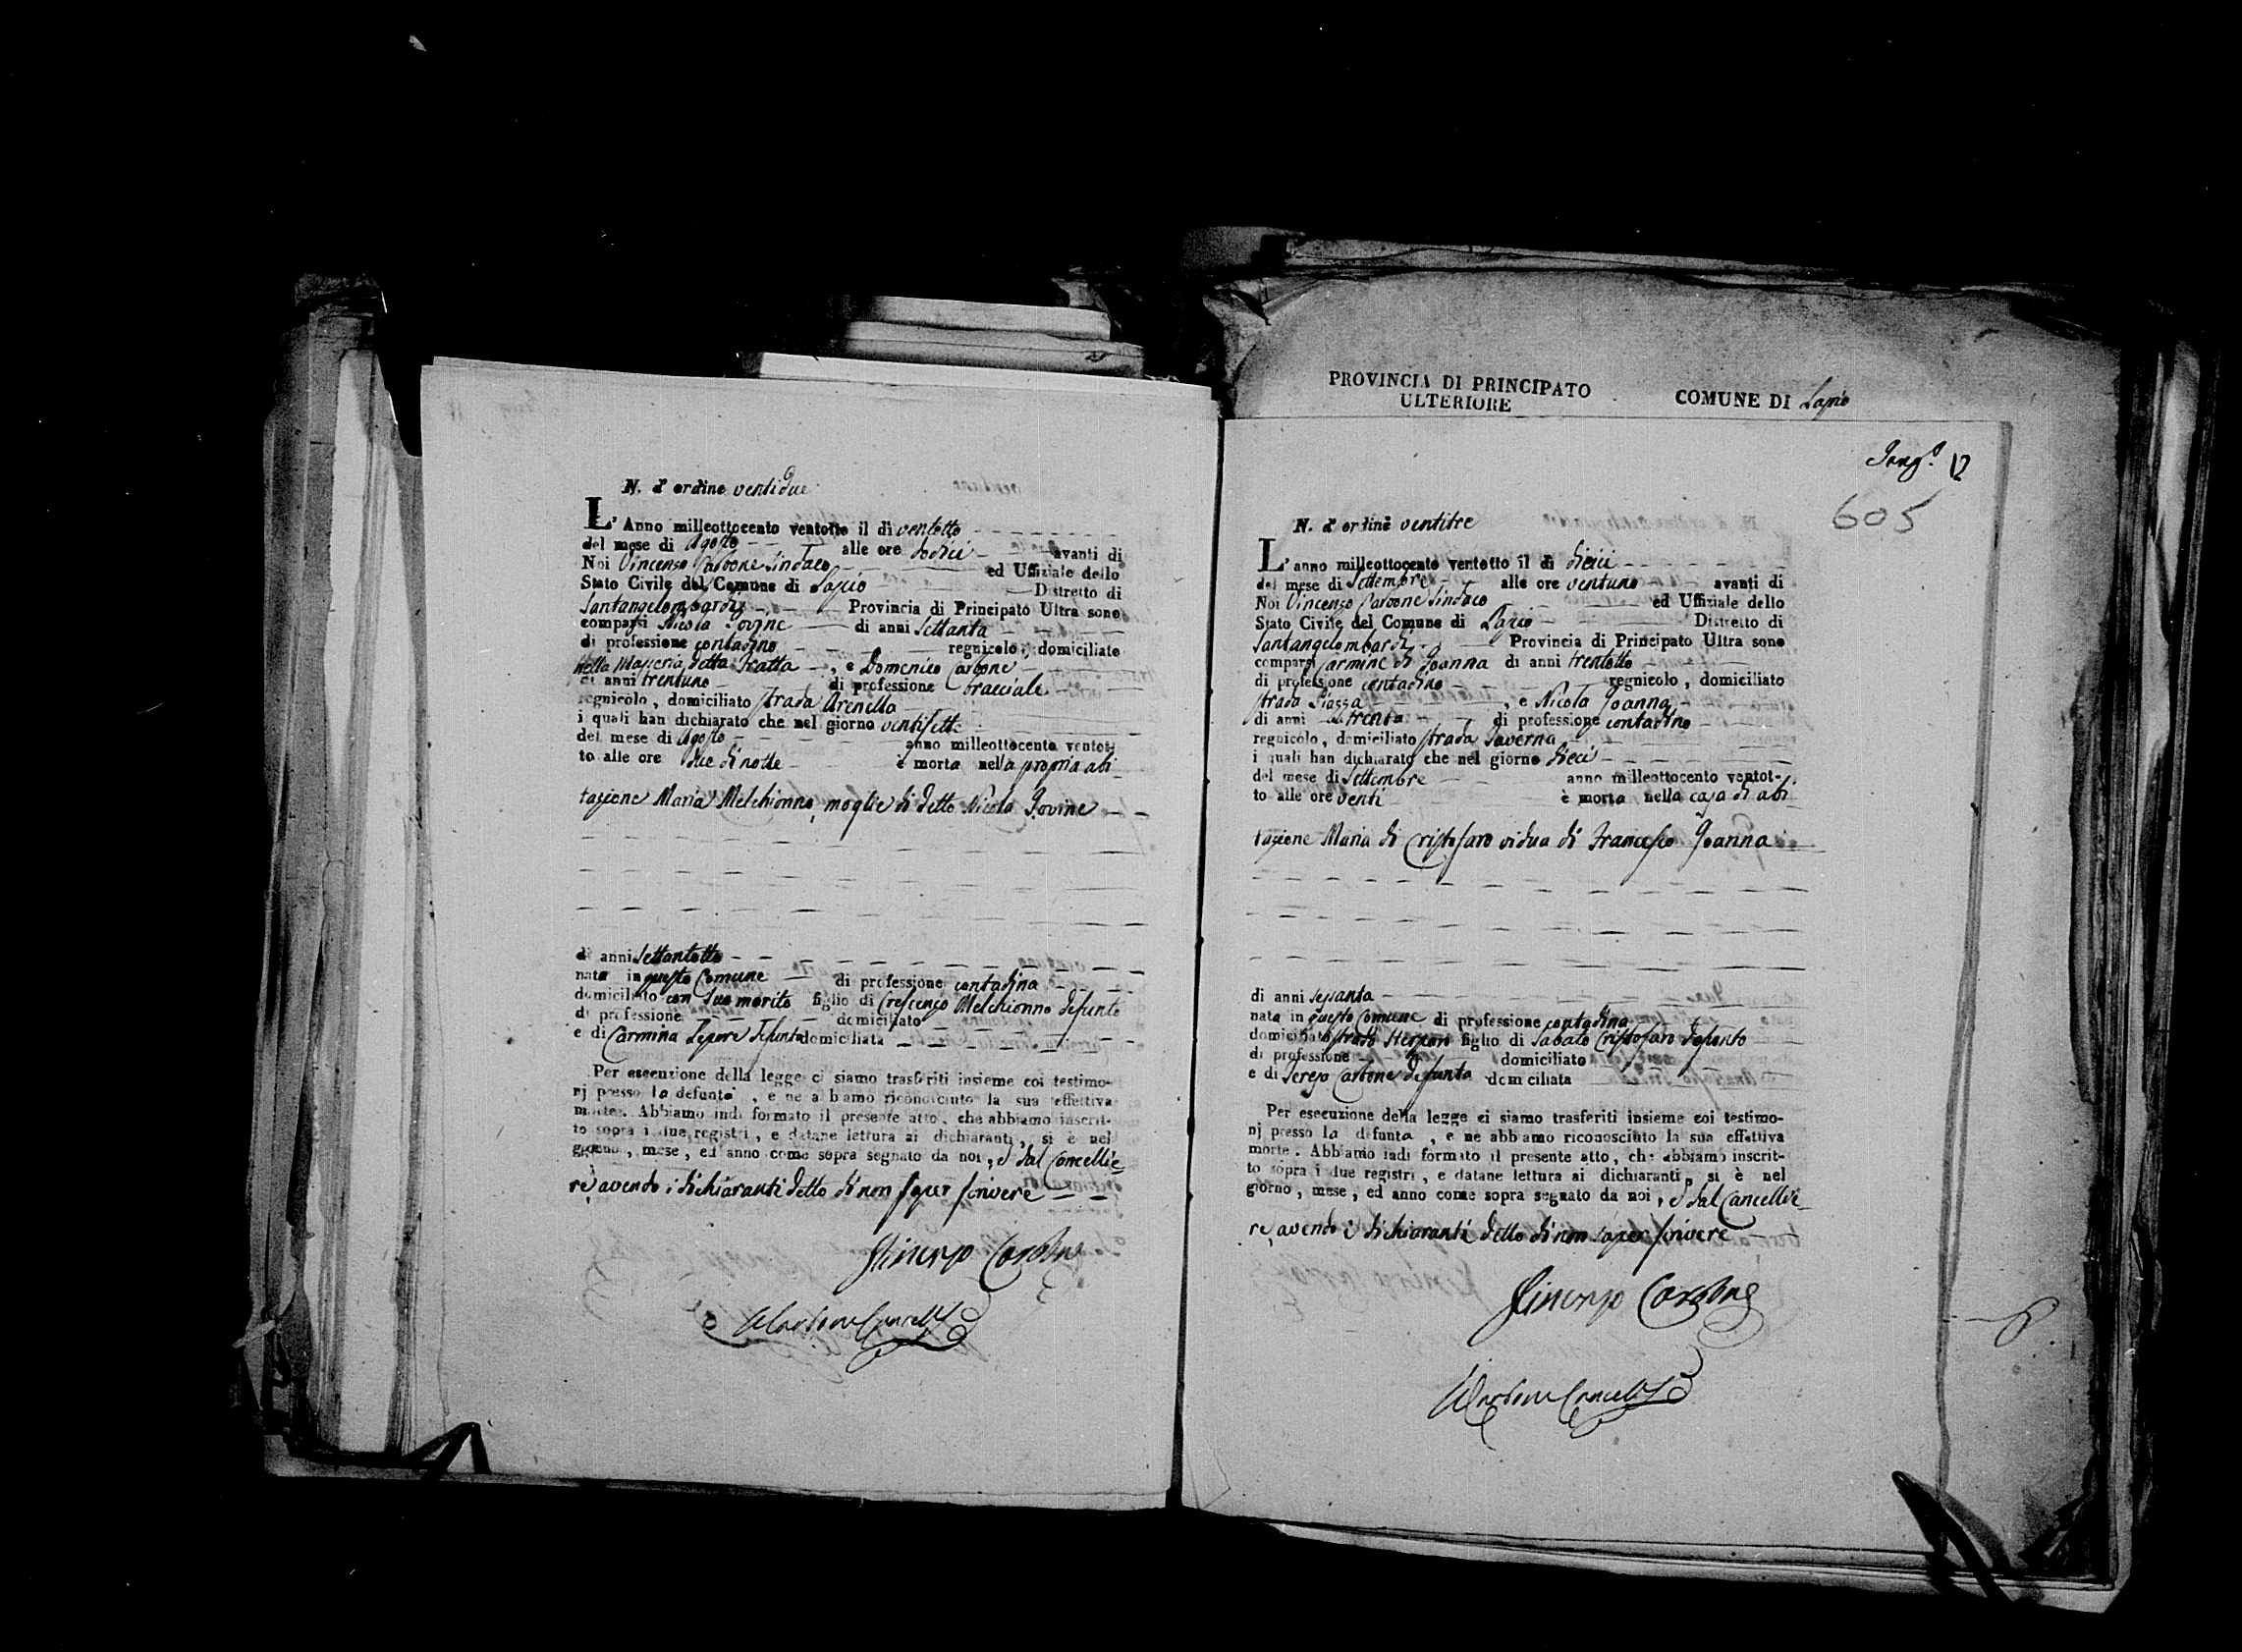 N. d'ordine ventidue
L'Anno milleottocento ventotto il dì ventotto
del mese di Agosto alle ore dodici avanti di
Noi Vincenzo Carbone Sindaco ed Uffiziale dello
Stato Civile del Comune di Lapio Distretto di
Santangelombardi Provincia di Principato Ultra sono
comparsi Nicola Iovine di anni settanta
di professione contadino regnicolo, domiciliato
nella Masseria detta Tratta, e Domenico Carbone
di anni trentuno di professione bracciale
regnicolo, domiciliato strada Arenella
i quali han dichiarato che nel giorno ventisette
del mese di Agosto anno milleottocento ventot-
to alle ore due di notte è morta nella propria abi
tazione Maria Melchionno, moglie di detto Nicola Iovine
di anni settantotto
nata in questo Comune di professione contadina
domiciliato con suo marito figlio di Crescenzo Melchionno defunto
di professione domiciliato
e di Carmina Lepore defunta domiciliata
Per esecuzione della legge ci siamo trasferiti insieme coi testimo-
nj presso la defunta, e ne abbiamo riconosciuto la sua effettiva
morte. Abbiamo indi formato il presente atto, che abbiamo inscrit-
to sopra i due registri, e datane lettura ai dichiaranti, si è nel
giorno, mese, ed anno come sopra segnato da noi, e dal Cancellie
re, avendo i dichiaranti detto di non saper scrivere
Vincenzo Carbone
Carbone Cancell.
PROVINCIA DI PRINCIPATO
ULTERIORE
COMUNE DI Lapio
12
605
N. d'ordine ventitre
L'anno milleottocento ventotto il dì dieci
del mese di Settembre alle ore ventuno avanti di
Noi Vincenzo Carbone Sindaco ed Uffiziale dello
Stato Civile del Comune di Lapio Distretto di
Santangelombardi Provincia di Principato Ultra sono
comparsi Carmine di Joanna di anni trentotto
di professione contadino regnicolo, domiciliato
strada Piazza, e Nicola Joanna
di anni trenta di professione contadino
regnicolo, domiciliato strada Taverna
i quali han dichiarato che nel giorno dieci
del mese di Settembre anno milleottocento ventot-
to alle ore venti è morta nella casa di abi
tazione Maria di Cristofaro vidua di Francesco Joanna
di anni sessanta
nata in questo Comune di professione contadina
domiciliato strada figlio di Sabato Cristofaro defunto
di professione domiciliato
e di Teresa Carbone defunta domiciliata
Per esecuzione della legge ci siamo trasferiti insieme coi testimo-
nj presso la defunta, e ne abbiamo riconosciuto la sua effettiva
morte. Abbiamo indi formato il presente atto, che abbiamo inscrit-
to sopra i due registri, e datane lettura ai dichiaranti, si è nel
giorno, mese, ed anno come sopra segnato da noi, e dal Cancellie
re, avendo i dichiaranti detto di non saper scrivere
Vincenzo Carbone
Carbone Cancell.